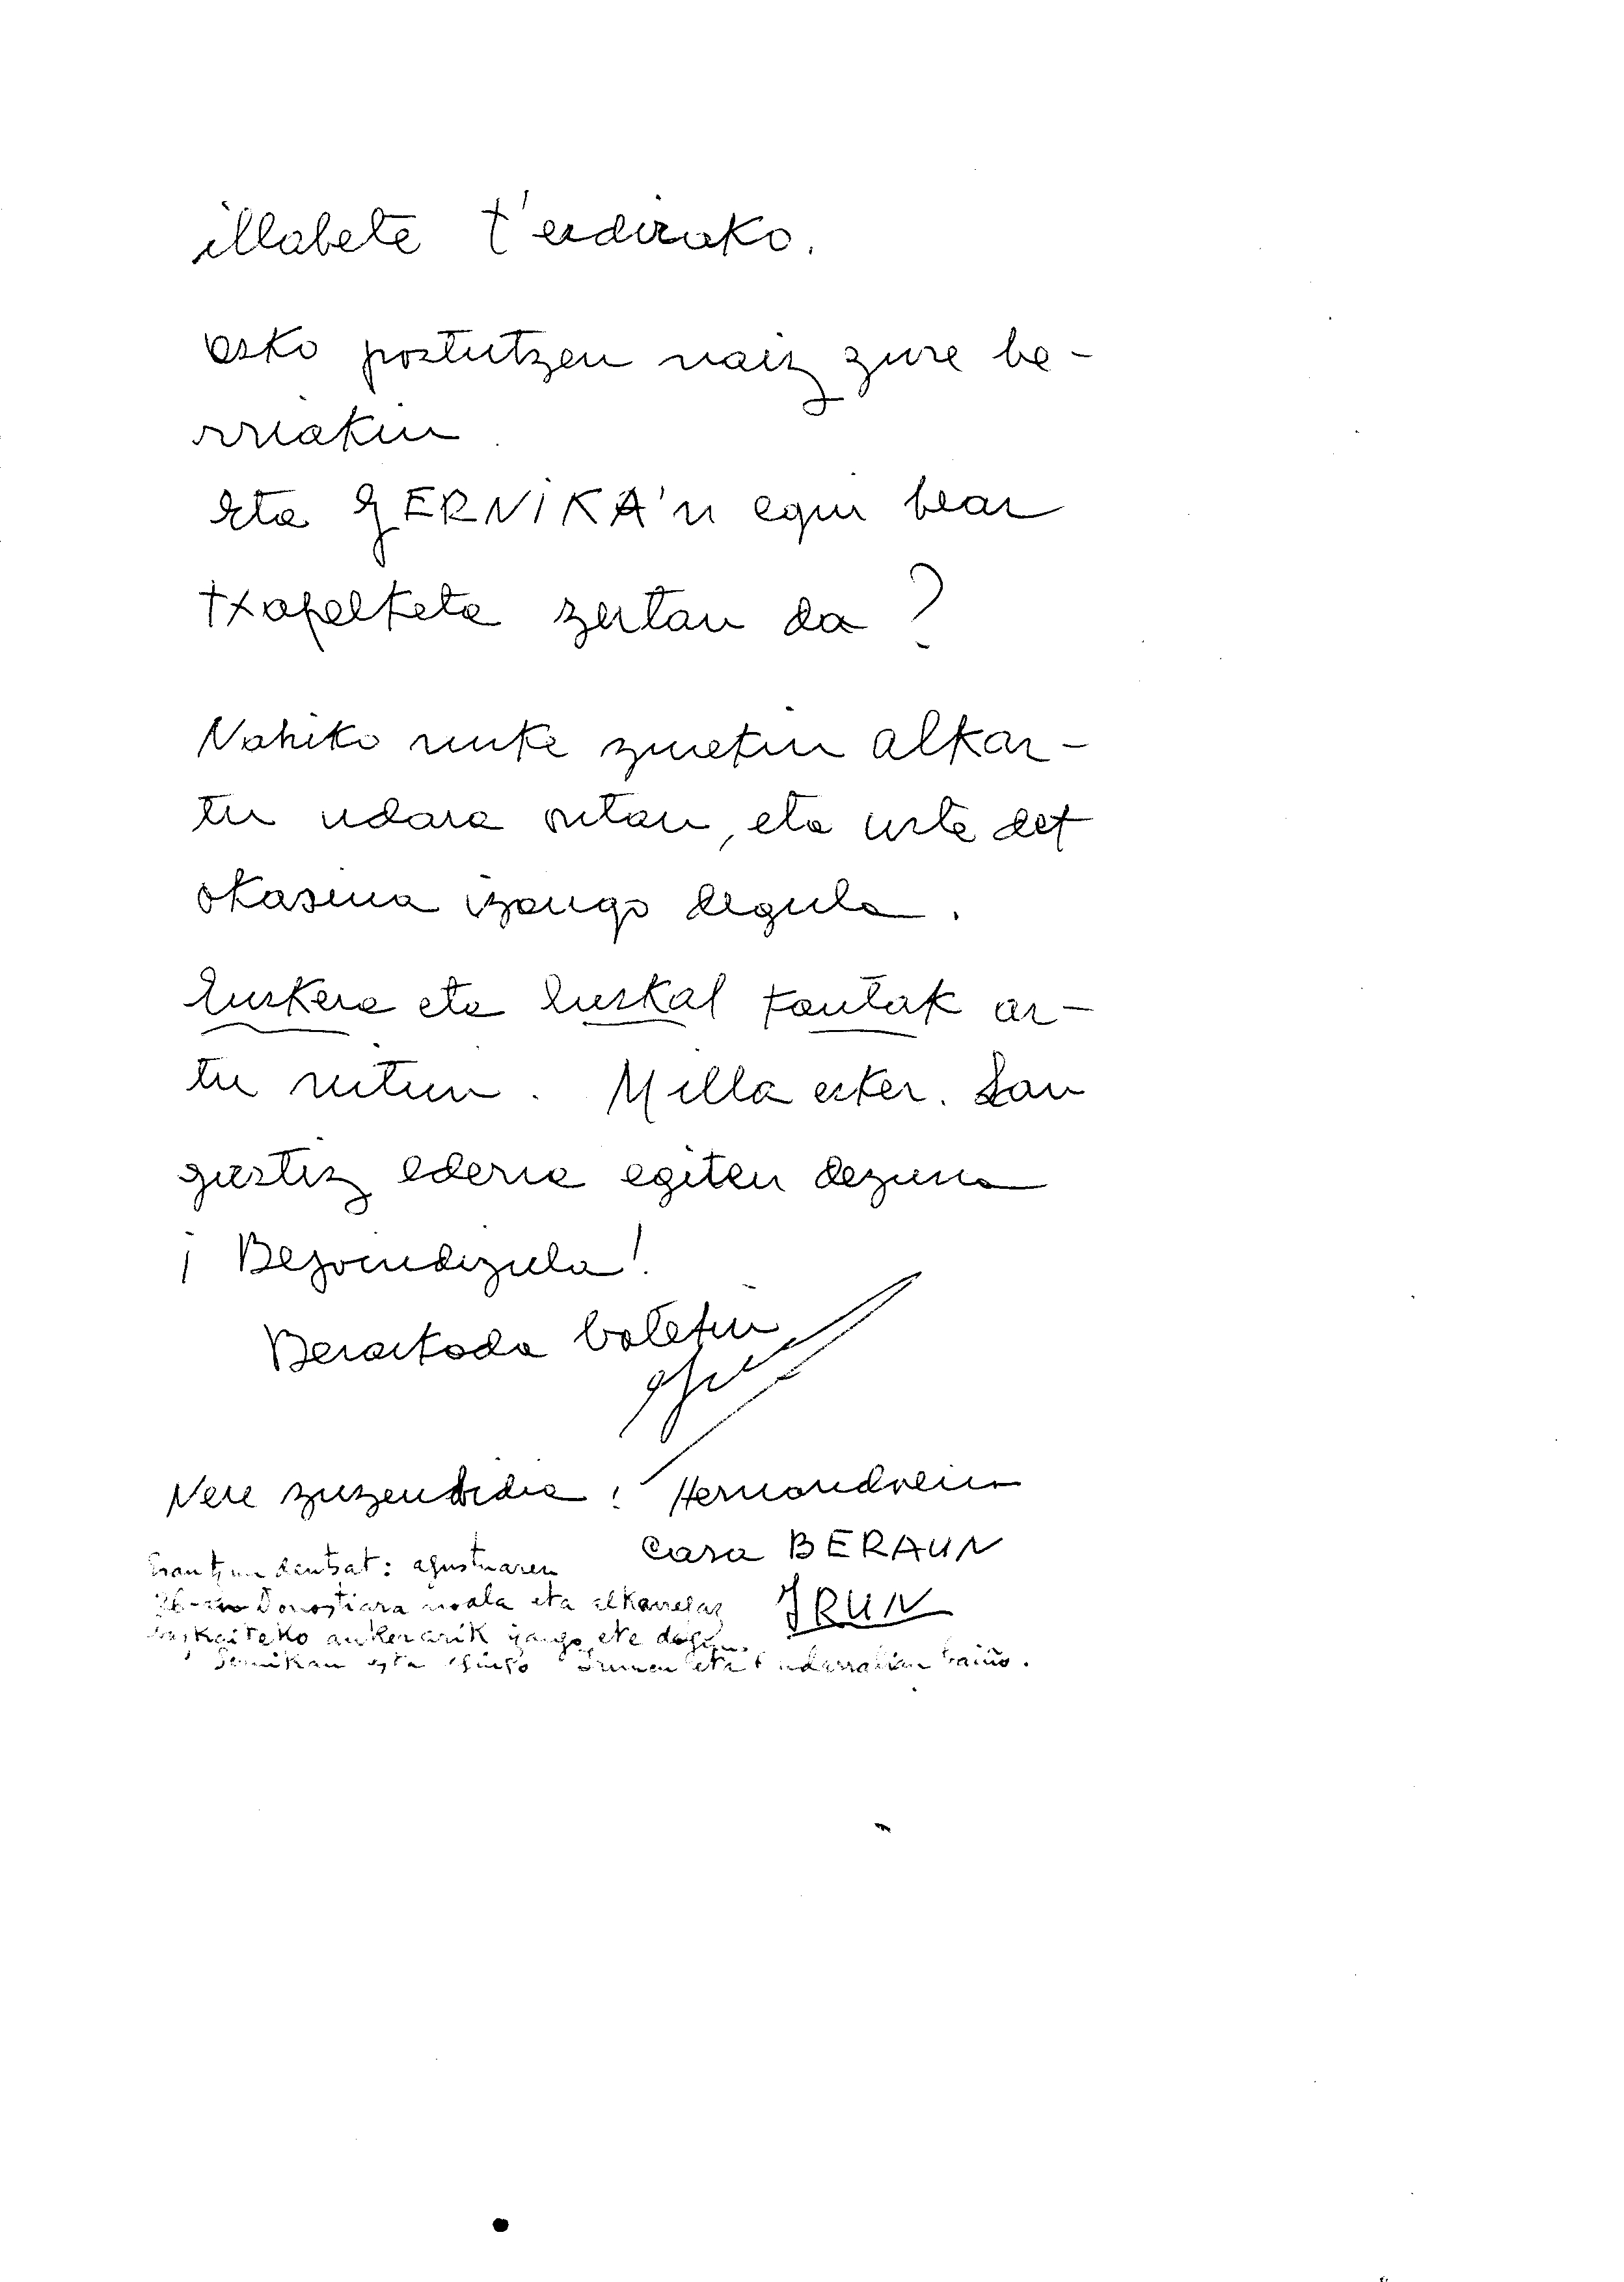 illabete t'erdirako.
asko postutzen naiz zure be-
rriakin
eta GERNIKA'n egin bear
txapelketa zertan da?
Nahiko nuke zuekin alkar-
tu udara ontan, eta uste det
okasiua izango degula.
Euskera eta Euskal kantak ar-
tu nitun. Milla esker. Lan
guztiz ederra egiten dezuna
¡Bejoindizula!
Beraitada batekin
Nere zuzenbidia: Hernandorena
Casa BERAUN
IRUN
Erantzun deutsat: agustuaren
26-an Donostiara noala eta alkarregaz
bazkaiteko aukerarik izango ete dogun.
Gernikan ezta Irunen eta